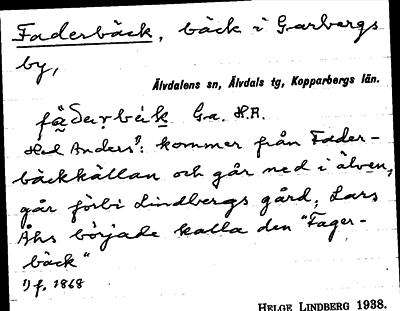 Faderbäck, bäck i Garbergs
by,
Älvdalens sn, Älvdals tg, Kopparbergs län.
Ga. H.A.
Anders¹⁾: kommer från Fader-
bäckkällan och går ned i älven,
går förbi Lindbergs gård, Lars
Åhs började kalla den "Fager-
bäck"
1) f. 1868
HELGE LINDBERG 1938.